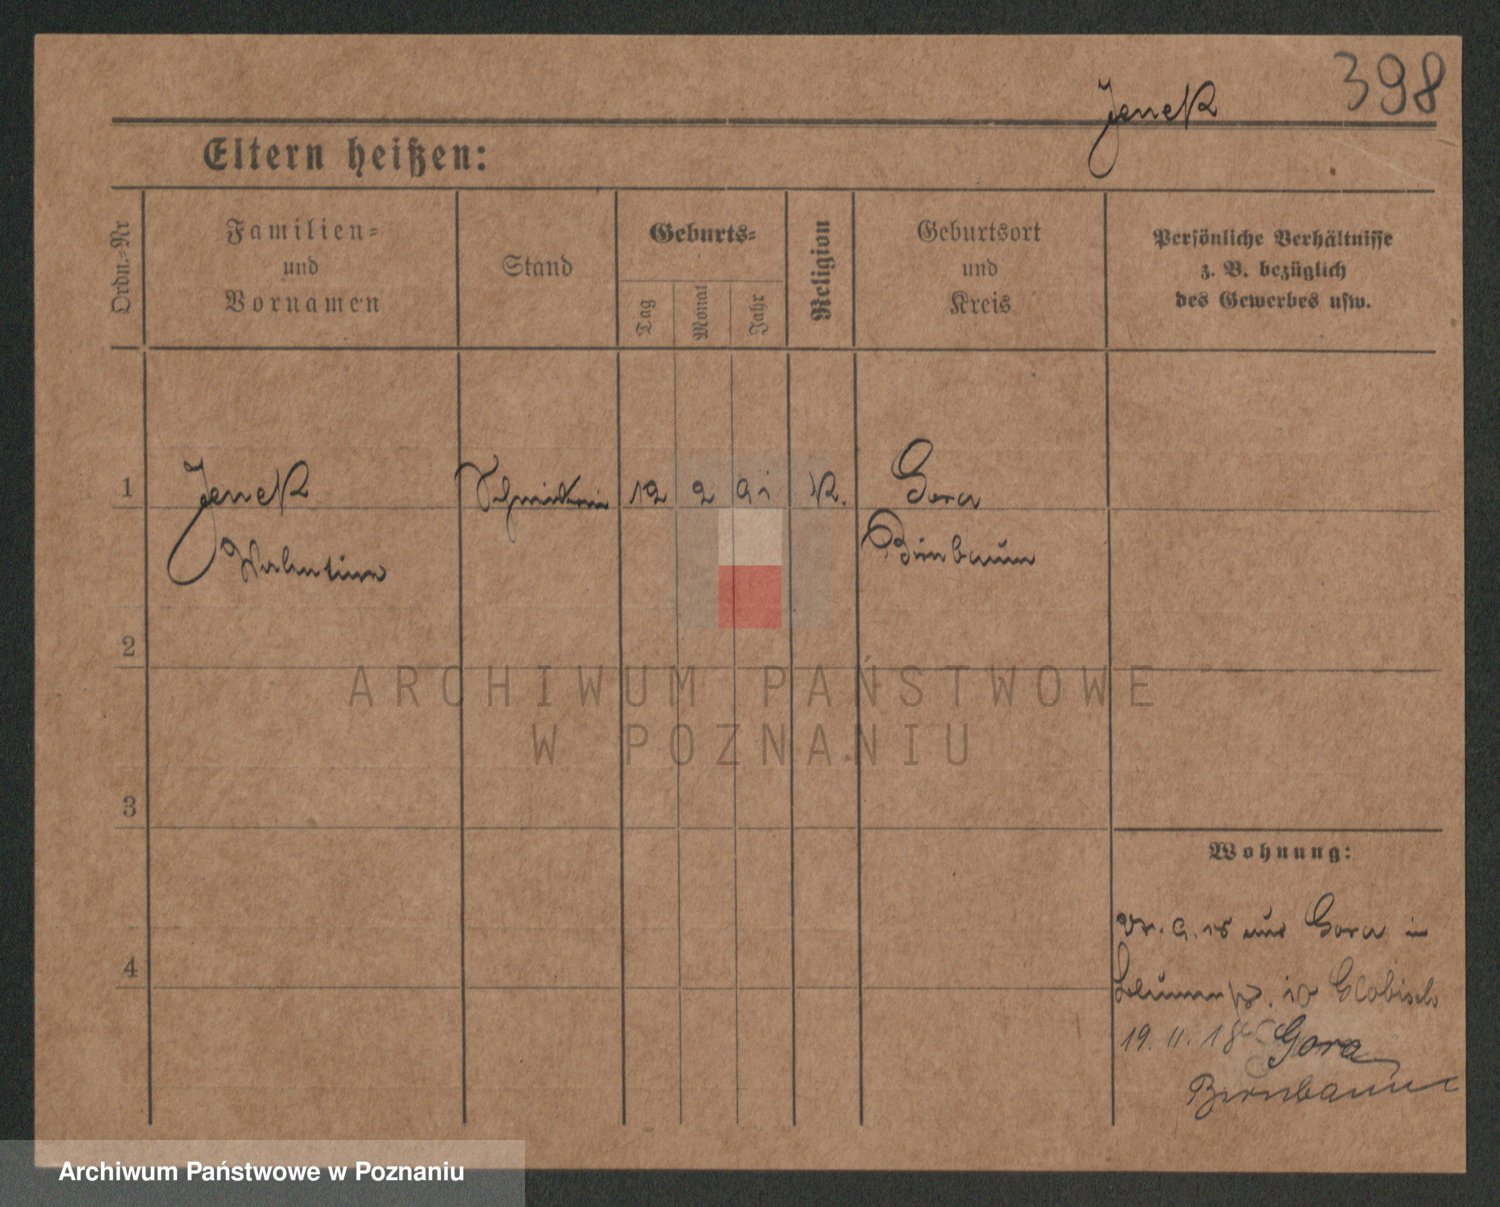 398
Jenek
Eltern heißen:
Ordn.-Nr
Familien-
und
Vornamen
Stand
Geburts-
Tag
Monat
Jahr
Religion
Geburtsort
und
Kreis
Persönliche Verhältnisse
z. B. bezüglich
des Gewerbes usw.
1
Jenek
Valentine
12 2 91
K.
Gora
Birnbaum
2
ARCHIWUM PAŃSTWOWE
W POZNANIU
3
Wohnung:
aus Gora in
4
19. 11. 18 Gora
Birnbaum
Archiwum Państwowe w Poznaniu